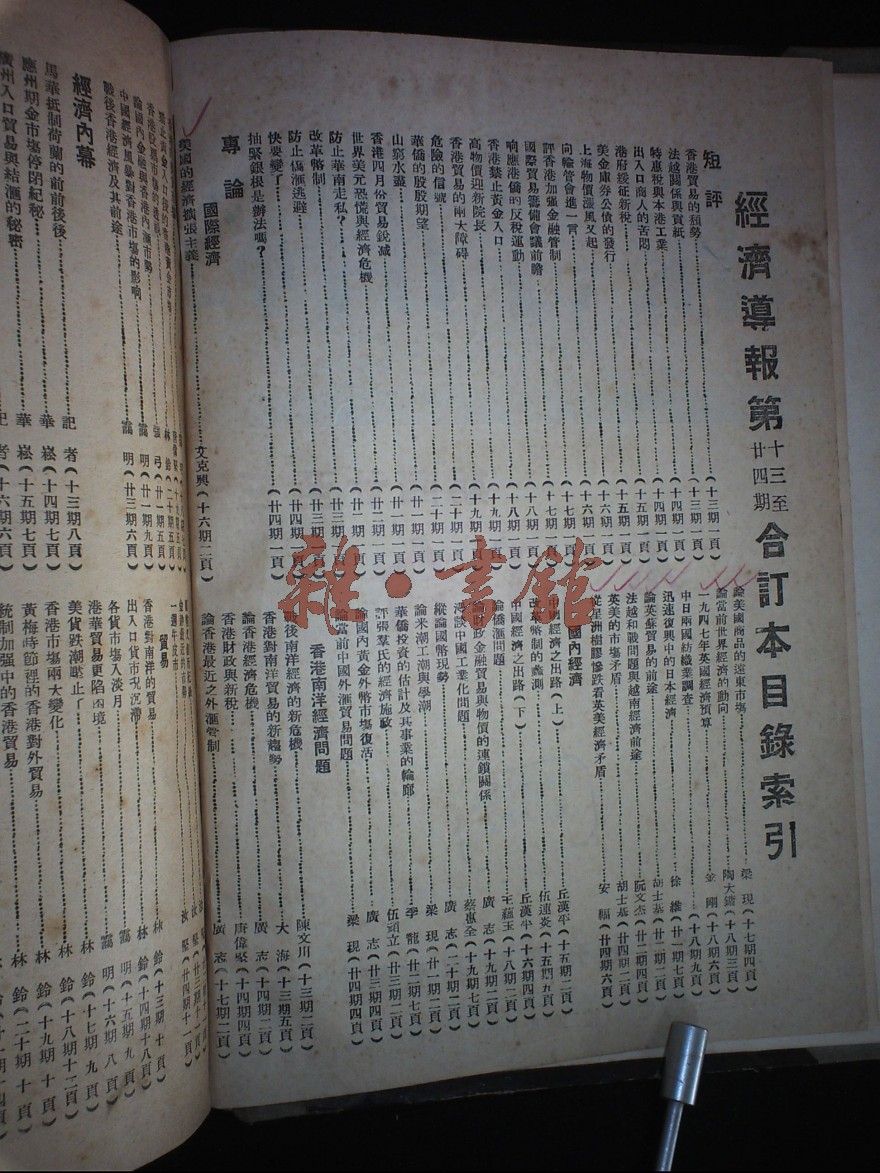 經濟導報第十三至廿四期合訂本目錄索引
短評
香港貿易的頹勢……(十三期一頁)
法越關係與貢紙……(十三期一頁)
特惠稅與本港工業……(十四期一頁)
出入口商人的苦悶……(十四期一頁)
港府緩征新稅……(十五期一頁)
美金庫券公債的發行……(十五期一頁)
上海物價漲風又起……(十六期一頁)
向輪管會進一言……(十六期一頁)
評香港加強金融管制……(十七期一頁)
國際貿易籌備會議前瞻……(十七期一頁)
响應港僑的反稅運動……(十八期一頁)
香港禁止黃金入口……(十八期一頁)
高物價迎新院長……(十九期一頁)
香港貿易的兩大障碍……(十九期一頁)
危險的信號……(二十期一頁)
華僑的股股期望……(二十期一頁)
山窮水盡……(廿一期一頁)
香港四月份貿易銳減
世界美元恐慌與經濟危機
防止華南走私?
改革幣制
防止僑滙逃避
快要變了
抽緊銀根是辦法嗎?……(廿四期一頁)
專論
國際經濟
美國的經濟擴張主義……艾克興(十六期二頁)
論美國商品的遠東市塲……梁 現(十七期四頁)
論當前世界經濟的動向……陶大鏞(十八期三頁)
一九四七年英國經濟預算……(十八期六頁)
中日兩國紡織業調查……(十八期九頁)
迅速復興中的日本經濟……徐 維(廿一期七頁)
論英蘇貿易的前途……胡士基(廿二期二頁)
法越和戰問題與越南經濟前途……阮文杰(廿二期四頁)
英美的市塲矛盾……胡士基(廿四期二頁)
從星洲樹膠慘跌看英美經濟矛盾……安 福(廿四期六頁)
國內經濟
中國經濟之出路(上)……丘漢平(十五期二頁)
改革幣制的蠡測……(十五期九頁)
中國經濟之出路(下)……丘漢平(十六期四頁)
論僑滙問題……王蘊玉(十八期二頁)
論財政金融貿易與物價的連鎖關係……廣 志(十九期二頁)
漫談中國工業化問題……蔡惠全(十九期七頁)
縱論國幣現勢……廣 志(二十期二頁)
論米潮工潮與學潮……梁 現(廿一期二頁)
華僑投資的估計及其事業的輪廓……李 龍(廿二期七頁)
評張羣氏的經濟施政……伍頑立(廿三期二頁)
論國內黃金外幣市塲復活……廣 志(廿三期四頁)
論當前中國外滙貿易問題……梁 現(廿四期四頁)
香港南洋經濟問題
戰後南洋經濟的新危機……陳文川(十三期二頁)
香港對南洋貿易的新趨勢……大 海(十三期五頁)
論香港經濟危機……廣 志(十四期二頁)
香港財政與新稅……唐偉堅(十四期四頁)
論香港最近之外滙管制……廣 志(十七期二頁)
論國內金融與香港內滙市勢
中國經濟風暴對香港市塲的影响……靄 明(廿一期九頁)
戰後香港經濟及其前途……靄 明(廿三期六頁)
經濟內幕
馬華抵制荷蘭的前前後後……記 者(十三期八頁)
應州期金市塲停閉紀秘……華 崧(十四期七頁)
廣州入口貿易與結滙的秘密……華 崧(十五期七頁)
記 者(十六期六頁)
一週年皮市
貿易
香港對南洋的貿易……林 鈴(十三期十頁)
出入口貨市況沉滯……林 鈴(十四期十八頁)
各貨市塲入淡月……靄 明(十五期九頁)
港華貿易更陷困境……靄 明(十六期八頁)
美貨跌潮壓止了……林 鈴(十七期九頁)
香港市塲兩大變化……林 鈴(十八期十二頁)
黃梅時節裡的香港對外貿易……林 鈴(十九期十頁)
統制加强中的香港貿易……林 鈴(二十期十頁)
雜·書館